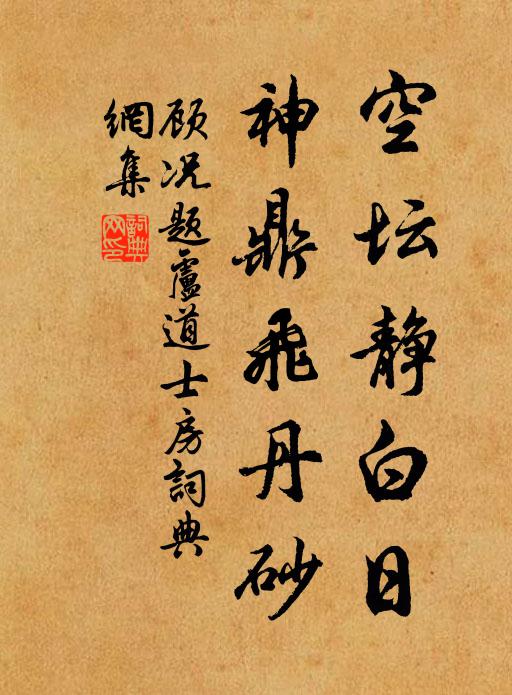 空坛静白日
神鼎飛丹砂
顾况题盧道士房詞典
網集
詞典
网印